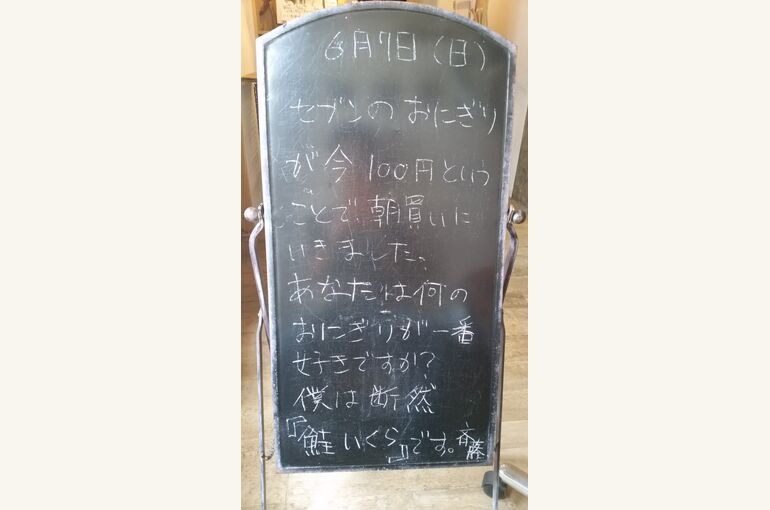 6月7日(日)
セブンのおにぎり
が今100円という
ことで、朝買いに
いきました。
あなたは何の
おにぎりが一番
好きですか?
僕は断然
『鮭いくら』です。斉藤